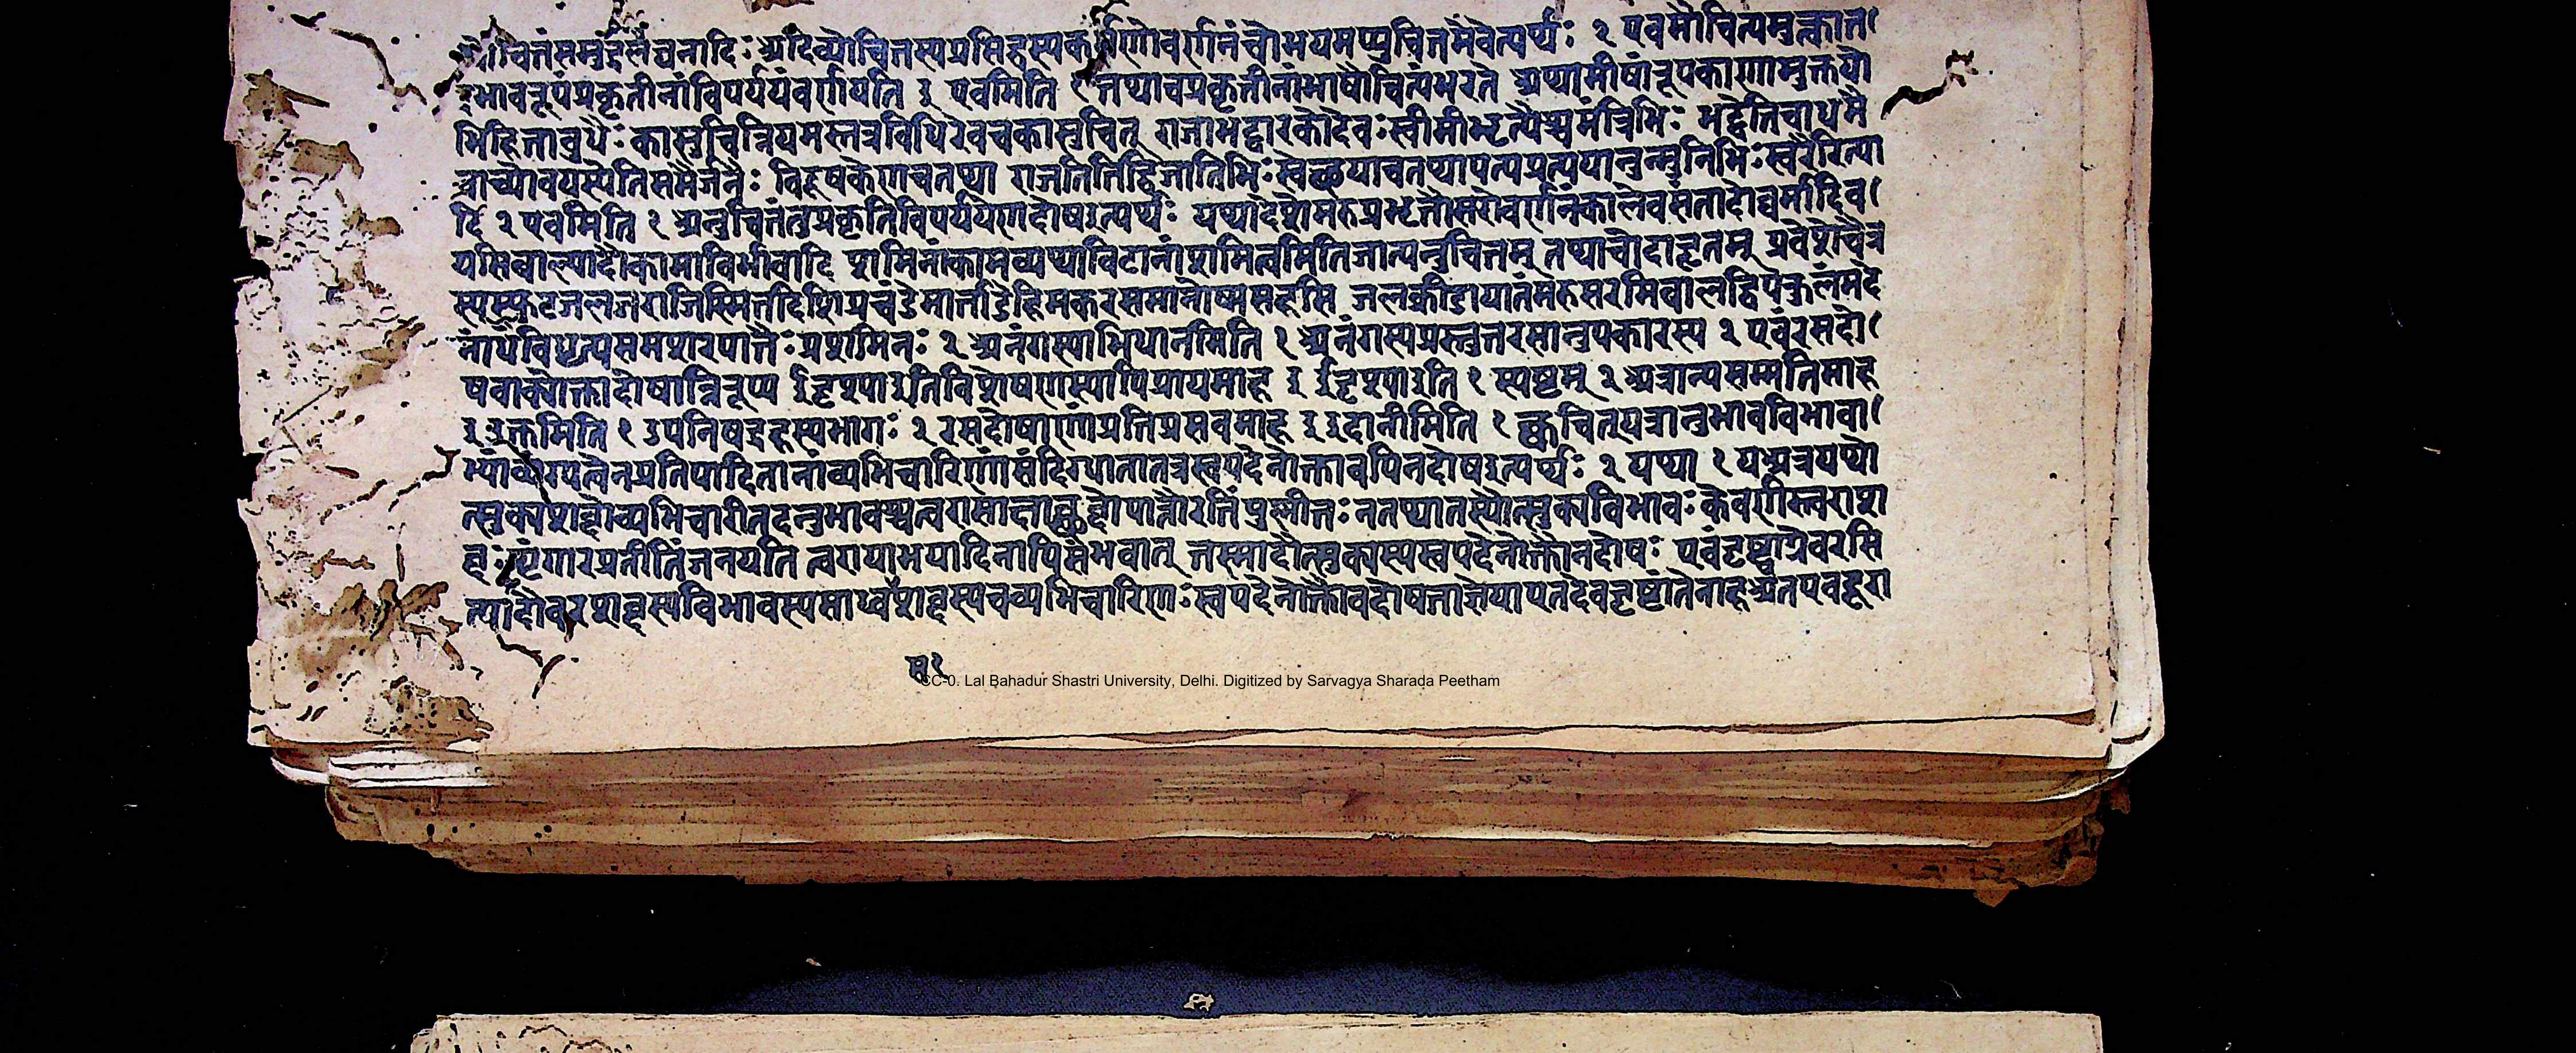 चितंसमुद्रलंघनादिः अदिव्योचितस्यप्रसिद्धस्यकर्मणोवर्णनंचोभयमप्युचितमेवेत्यर्थः २ एवमौचित्यमुत्क्रात
द्भावरूपंप्रकृतीनांविपर्ययंवर्णयति इ एवमिति १ तथाचप्रकृतीनांभाषौचित्यंभरते अथामीषांरूपकाणामुक्तयो
भिहिताबुधैः कासुचिन्नियमस्तत्रविधिरेवचकासुचित् राजाभट्टारकोदेवः स्वामीभृत्यैश्चमंत्रिभिः भट्टेतिचाधमै
वाच्योवयस्येतिसमैर्जनैः विदूषकेणचतथा राजर्तितिद्विजातिभिः स्वेछयाचतथापत्यप्रत्ययानुन्मुनिभिः स्वरैरित्या
दि २ एवमिति १ अनुचितंतुप्रकृतिविपर्ययएणदोषइत्यर्थः यथादेशेमरुप्रभृतौसरोवर्णनंकालेवसंतादौघर्मादिव
यसिबाल्यादौकामाविर्भावादि शमिनांकामव्यथाविटानांशमित्वमितिजात्यनुचितम् तथाचोदाहृतम् प्रवेशेचैत्र
स्यस्फुटजलजराजिस्मितदिशिप्रचंडेमार्तांडेहिमकरसमानोष्ममहसि जलक्रीडायातंमरुसरसिबालद्विपकुलंमदे
नांधंविधृत्यसमशरपातैः प्रशमिनः २ अनंगस्याभिधानमिति १ अनंगस्यप्रस्तुतरसानुपकारस्य २ एवंरसदो
षवाक्योक्तादोषान्निरूप्य ईदृशाइतिविशेषणस्याभिप्रायमाह इ ईदृशाइति १ स्पष्टम् २ अत्रान्यसम्मतिमाह
इ उक्तमिति १ उपनिषद्रहस्यभागः २ रसदोषाणांप्रतिप्रसवमाह इ इदानीमिति १ क्वचित्यत्रानुभावविभावा
भ्यांव्यंग्यत्वेनप्रतिपादितानांव्यभिचारिणांसंदिग्धातातत्रस्वपदेनोक्तावपिनदोषइत्यर्थः २ यथा १ यअत्रयथौ
त्सुक्यशब्दोव्यभिचारीतदनुभावश्चत्वरासात्ताच्छब्दोपात्तौरतिंपुष्णीतः नतथातस्यौत्सुक्यविभावः केवणीस्त्वराशा
ब्दः शृंगारप्रतीतिंजनयति त्वरायाभयादिनापिसंभवात् तस्मादौत्सुक्यस्यस्वपदेनोक्तौनदोषः एवंदृष्ट्वाग्रेवरसि
त्यादौवरशब्दस्यविभावस्यसाध्वसशब्दस्यचव्यभिचारिणः स्वपदेनोक्तौवदोषताज्ञेयाएतदेवदृष्टांतेनाहअतएवदूरा
CC-0. Lal Bahadur Shastri University, Delhi. Digitized by Sarvagya Sharada Peetham